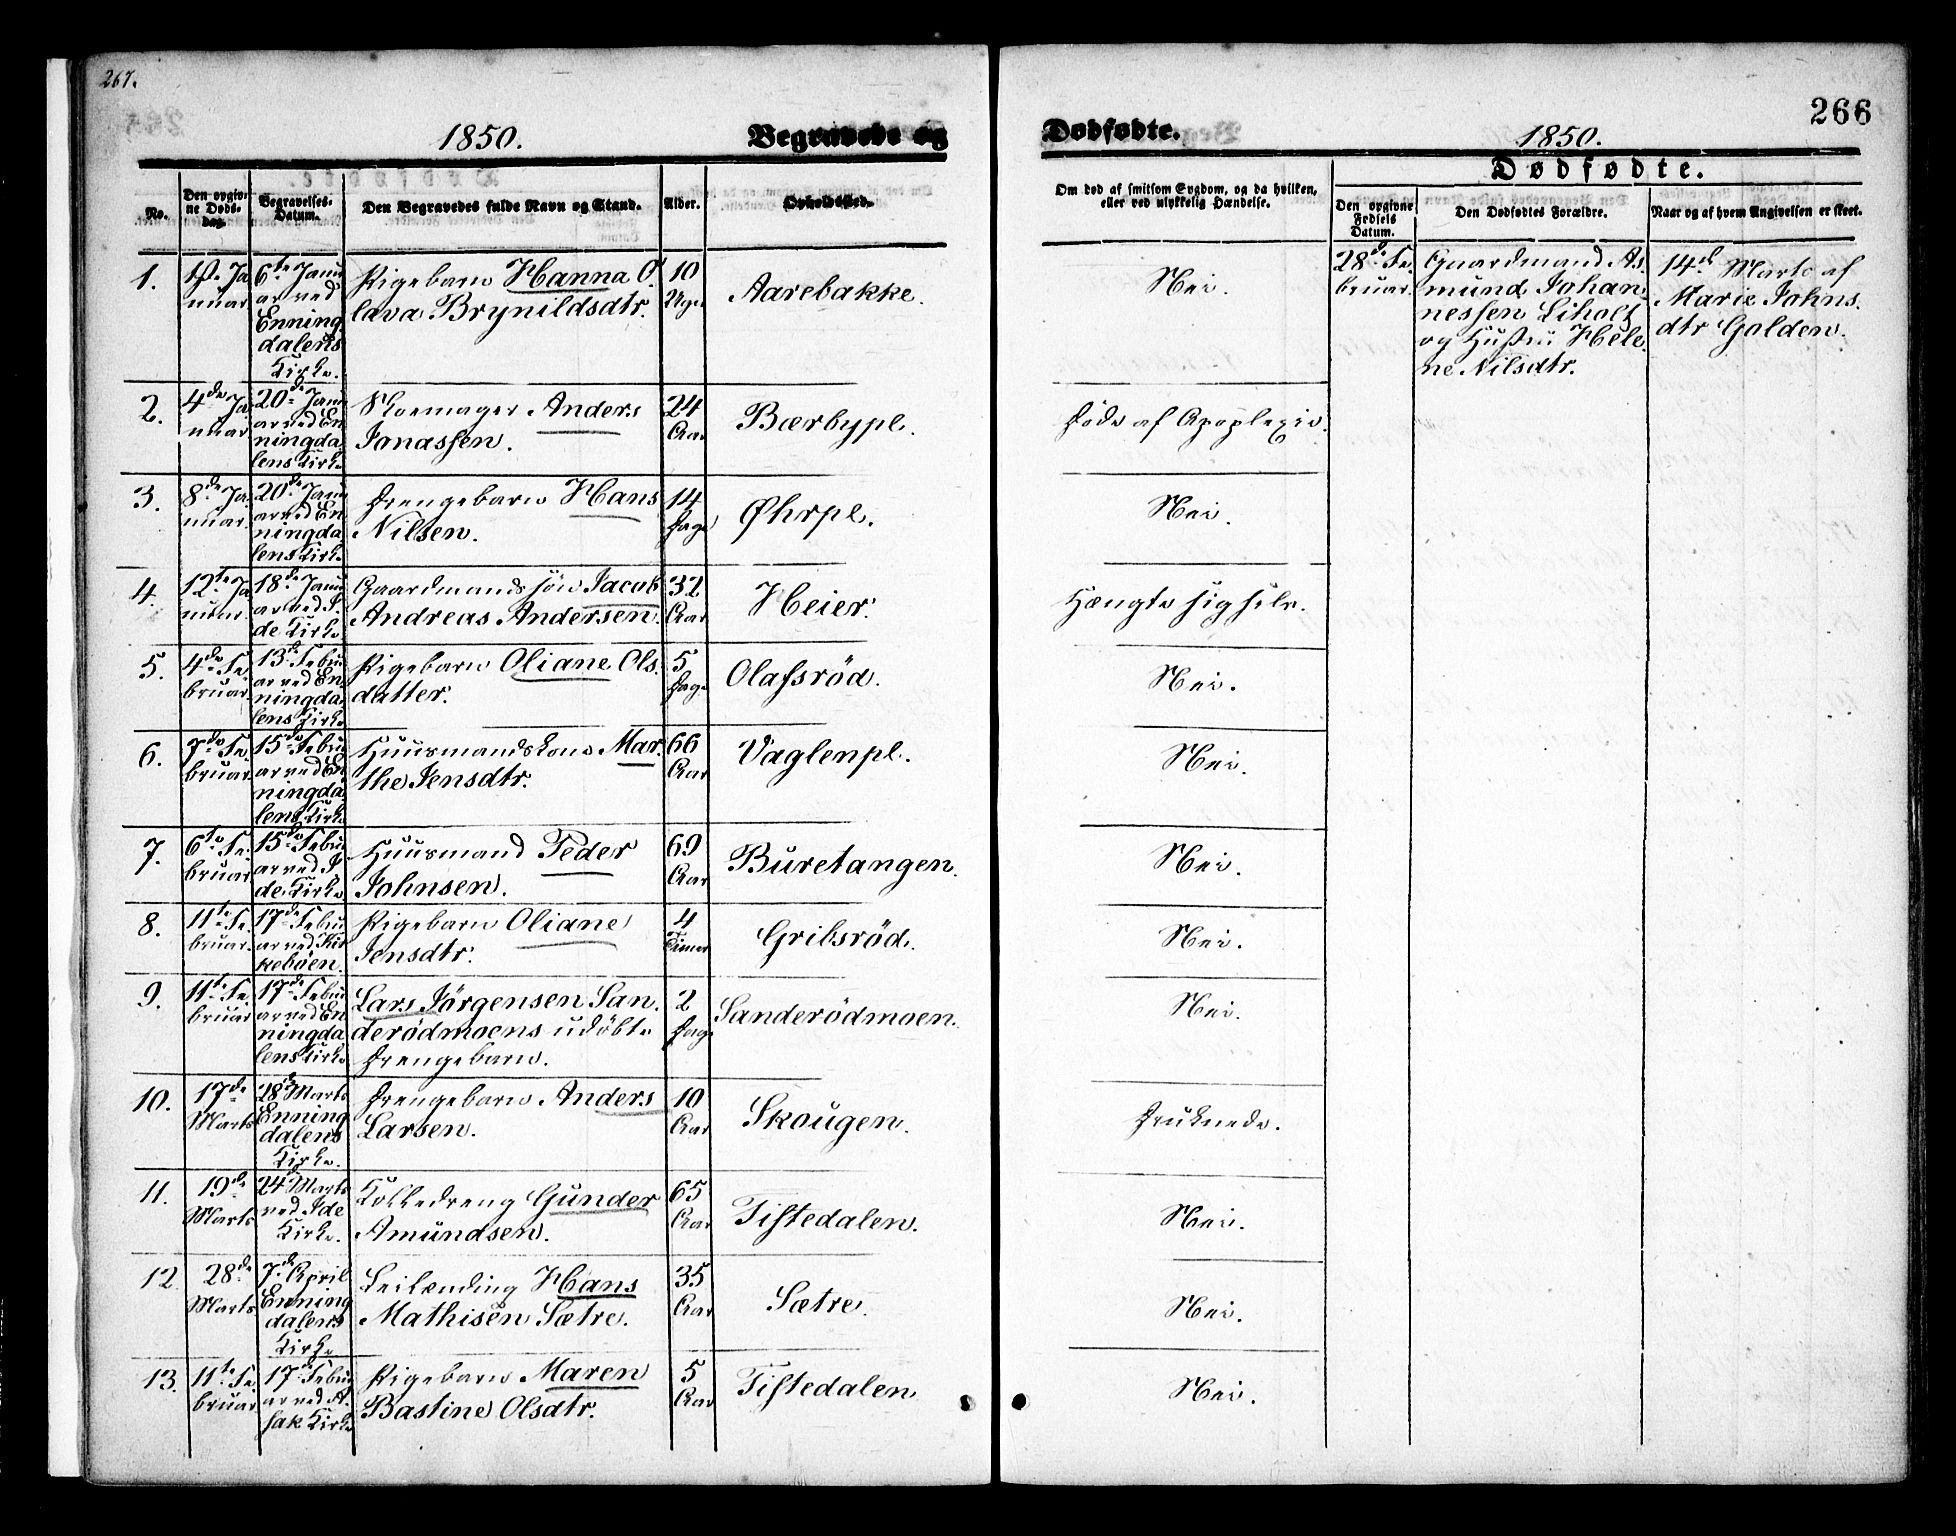 267.
1850.
Begravede og
No.
Den opgiv-
ne Døds-
dag.
Begravelses-
Datum.
Den Begravedes fulde Navn og Stand.
Alder.
Opholdssted.
1.
1ste Ja
nuar
6te Janu
ar ved
Enning
dalens
Kirke.
Pigebarn Hanna O.
lava Brynildsdtr.
10
Uger
Aarebakke.
2.
4de Ja
nuar
20de Janu
ar ved En
ningda
lens Kirke
Skomager Anders
Jonassen.
24
Aar
Bærbypl.
3.
8de Ja
nuar.
20de Janu
ar ved En
ningda
lens Kirke
Drengebarn Hans
Nilsen.
14
Dage
Øhrpl.
4.
12te Ja
nuar.
18de Janu
ar ved I
de Kirke
Gaardmandssøn Jacob
Andreas Andersen.
32
Aar
Heier.
5.
4de Fe
bruar.
13de Febru
ar ved En
ningda
lens Kirke
Pigebarn Oliane Ols.
datter.
5
Dage
Olafsrød.
6.
7de Fe
bruar.
15de Febru
ar ved En
ningda
lens Kirke
Huusmandskone Mar.
the Jensdtr.
66
Aar
Vaglenpl.
7.
6te Fe.
bruar
15de Febru
ar ved I
de Kirke
Huusmand Peder
Johnsen.
69
Aar
Buretangen.
8.
11te Fe.
bruar.
17de Febru
ar ved Kir
kebøen.
Pigebarn Oliane
Jensdtr.
4
Timer
Gribsrød.
9.
11te Fe.
bruar
17de Febru
ar ved En
ningda
lens Kirke
Lars Jørgensen San.
derødmoens udøbte
Drengebarn.
2
Dage
Sanderødmoen.
10.
17de
Marts
28de Marts
Enning
dalens
Kirke.
Drengebarn Anders
Larsen.
10
Aar
Skougen.
11.
19de
Marts
24de Marts
ved Ide
Kirke.
Gunder
Amundsen.
65
Aar
Tistedalen.
12.
28de
Marts
7de April
Enning
dalens
Kirke
Leilænding Hans
Mathisen Sætre.
35
Aar
Sætre.
13.
11te Fe.
bruar
17de Febru
ar ved A.
sak Kirke
Pigebarn Maren
Bastine Olsdtr.
5
Aar
Tistedalen
266
Dødfødte.
1850.
Om død af smitsom Sygdom, og da hvilken,
eller ved ulykkelig Hændelse.
Dødfødte.
Den opgivne
Fødsels
Datum.
Den Dødfødtes Forældre.
Naar og af hvem Angivelsen er skeet.
Nei.
28de Fe.
bruar.
Gaardmand As.
mund Johan
nessen Liholt
og Hustru Hele.
ne Nilsdtr.
14d Marts af
Marie Johns.
dtr Golden.
Døde af Apoplexie.
Nei.
Hængte sig selv.
Nei.
Nei.
Nei.
Nei.
Nei.
Druknede.
Nei.
Nei.
Nei.